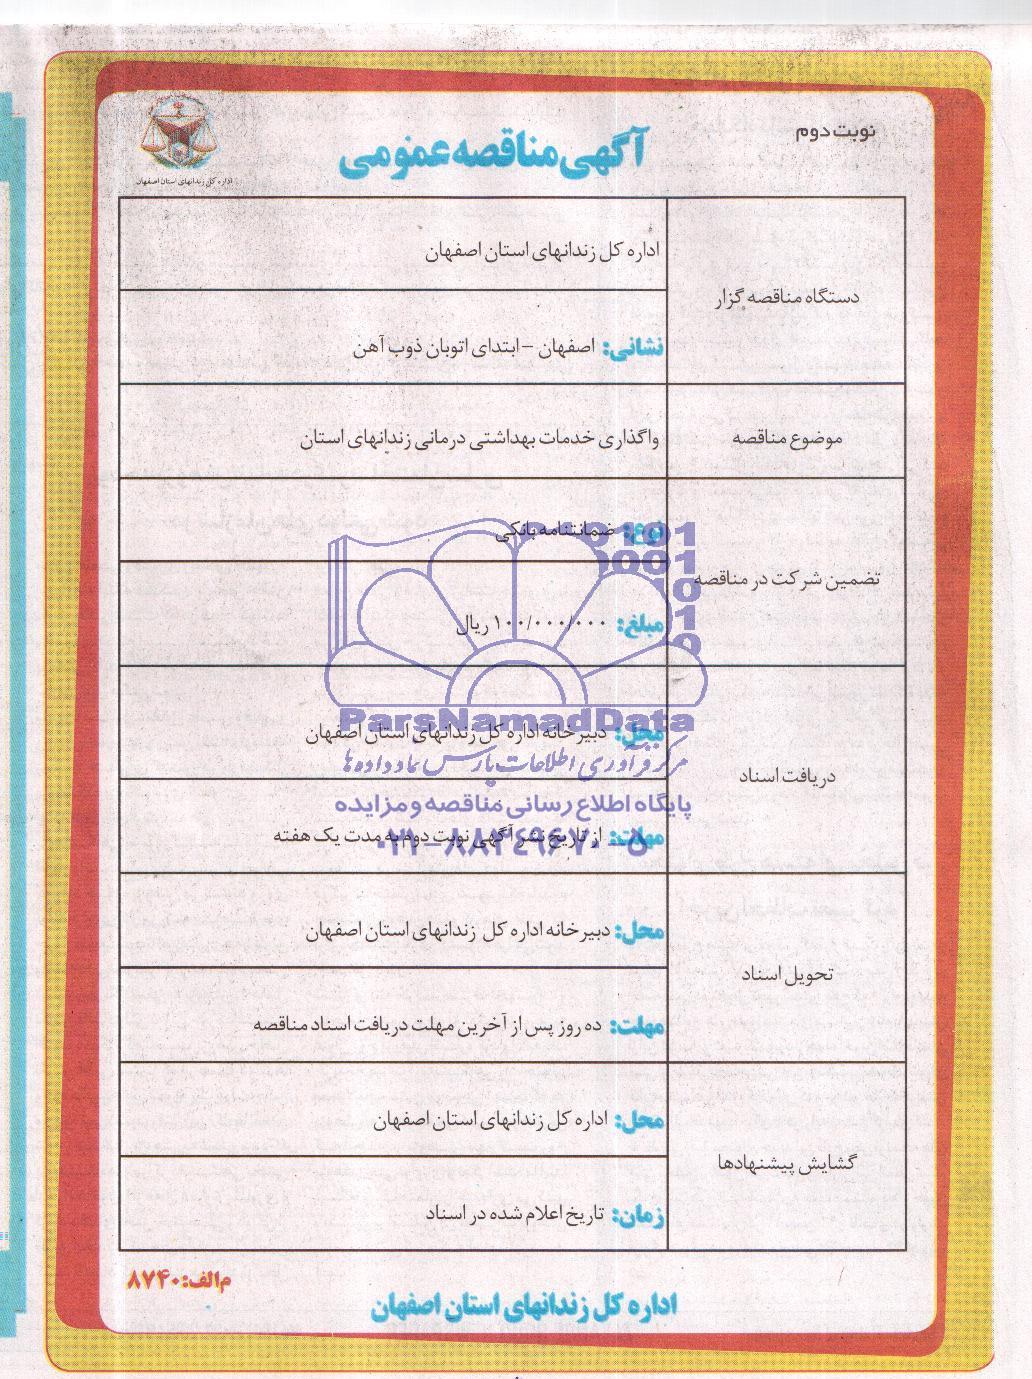 نوبت دوم
آگهی مناقصه عمومی
اداره کل زندانهای استان اصفهان
دستگاه مناقصه گزار
اداره کل زندانهای استان اصفهان
نشانی: اصفهان - ابتدای اتوبان ذوب آهن
موضوع مناقصه
واگذاری خدمات بهداشتی درمانی زندانهای استان
تضمین شرکت در مناقصه
نوع: ضمانتنامه بانکی
مبلغ: ۱۰۰/۰۰۰/۰۰۰ ریال
دریافت اسناد
ParsNamadData
محل: دبیرخانه اداره کل زندانهای استان اصفهان
مرکز فرآوری اطلاعات پارس نماد داده ها
پایگاه اطلاع رسانی مناقصه و مزایده
مهلت: از تاریخ نشر آگهی نوبت دوم به مدت یک هفته
۰۲۱-۸۸۳۴۹۶۷۰-۵
تحویل اسناد
محل: دبیرخانه اداره کل زندانهای استان اصفهان
مهلت: ده روز پس از آخرین مهلت دریافت اسناد مناقصه
گشایش پیشنهادها
محل: اداره کل زندانهای استان اصفهان
زمان: تاریخ اعلام شده در اسناد
م الف: ۸۷۴۰
اداره کل زندانهای استان اصفهان